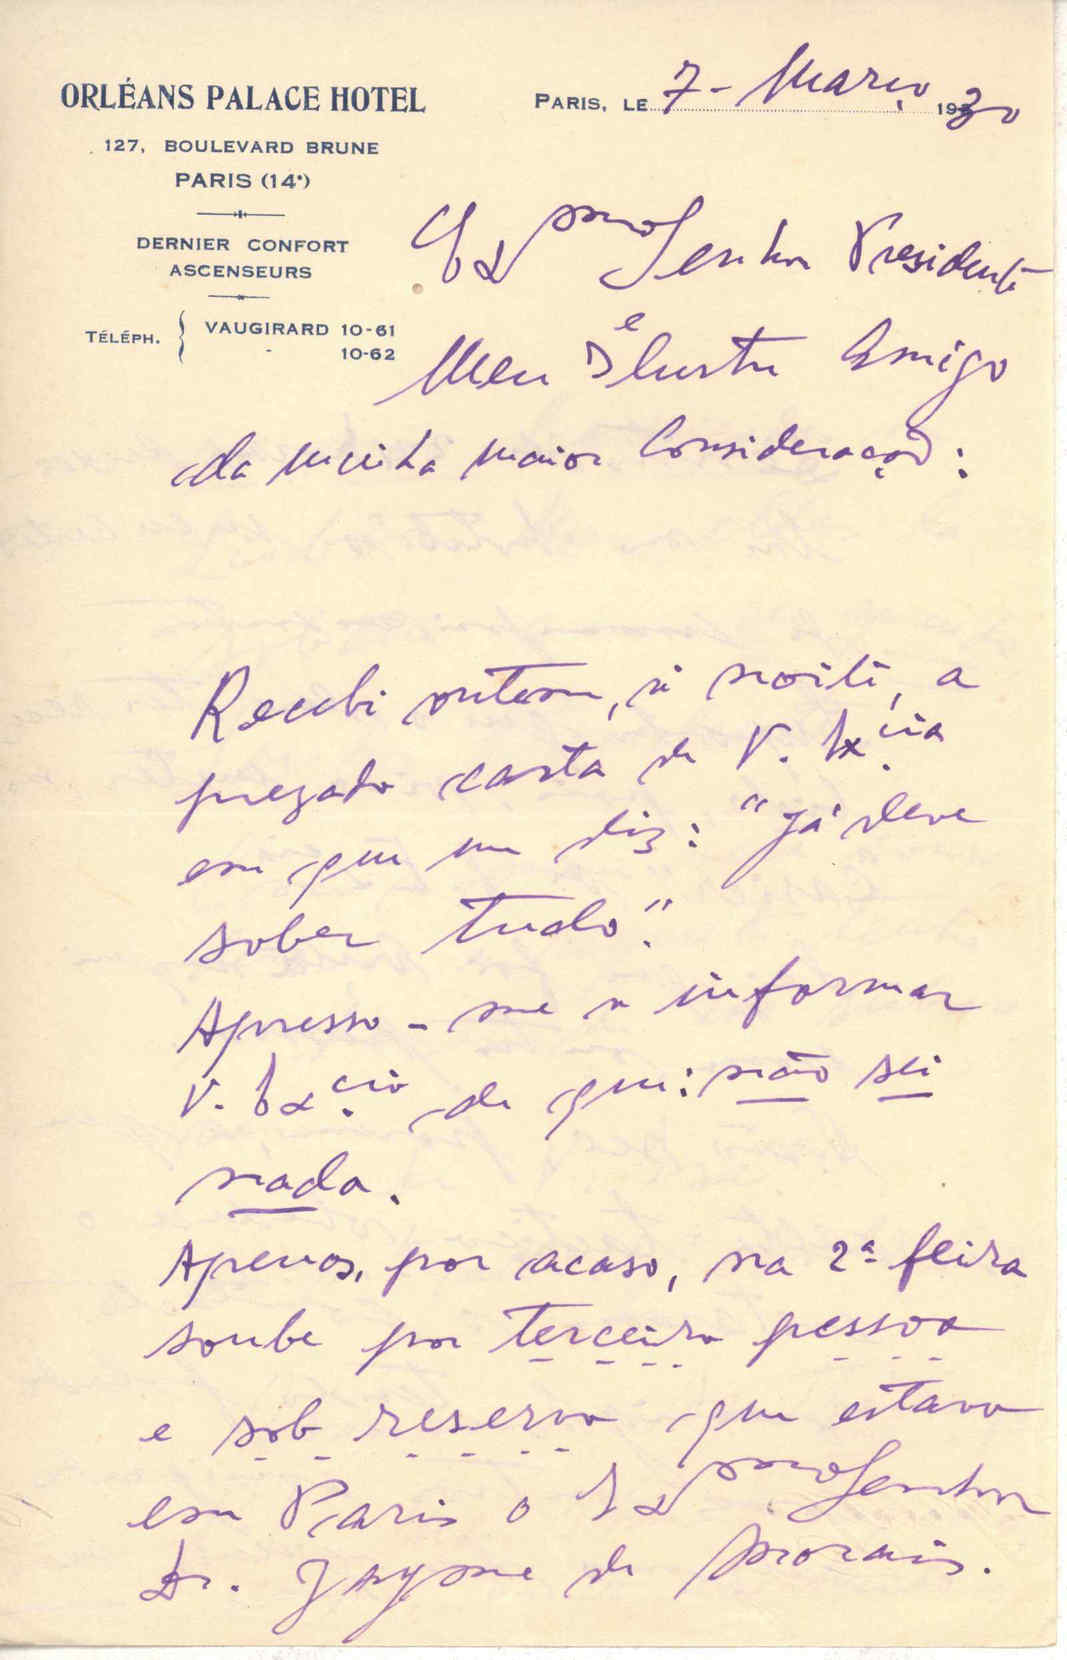 ORLÉANS PALACE HOTEL
127, BOULEVARD BRUNE
PARIS (14e)
DERNIER CONFORT
ASCENSEURS
TÉLÉPH. { VAUGIRARD 10-61
10-62
PARIS, LE 7 - Março 1930
Exmo Senhor Presidente
e
Meu Ilustre Amigo
da minha maior Consideração:
Recebi ontem, à noite, a
prezada carta de V. Excia.
em que me diz: "já deve
saber tudo".
Apresso-me a informar
V. Excia. de que: não sei
nada.
Apenas, por acaso, na 2ª feira
soube por terceira pessoa
e sob reserva que estava
em Paris o Exmo Senhor
Dr. Jayme de Morais.